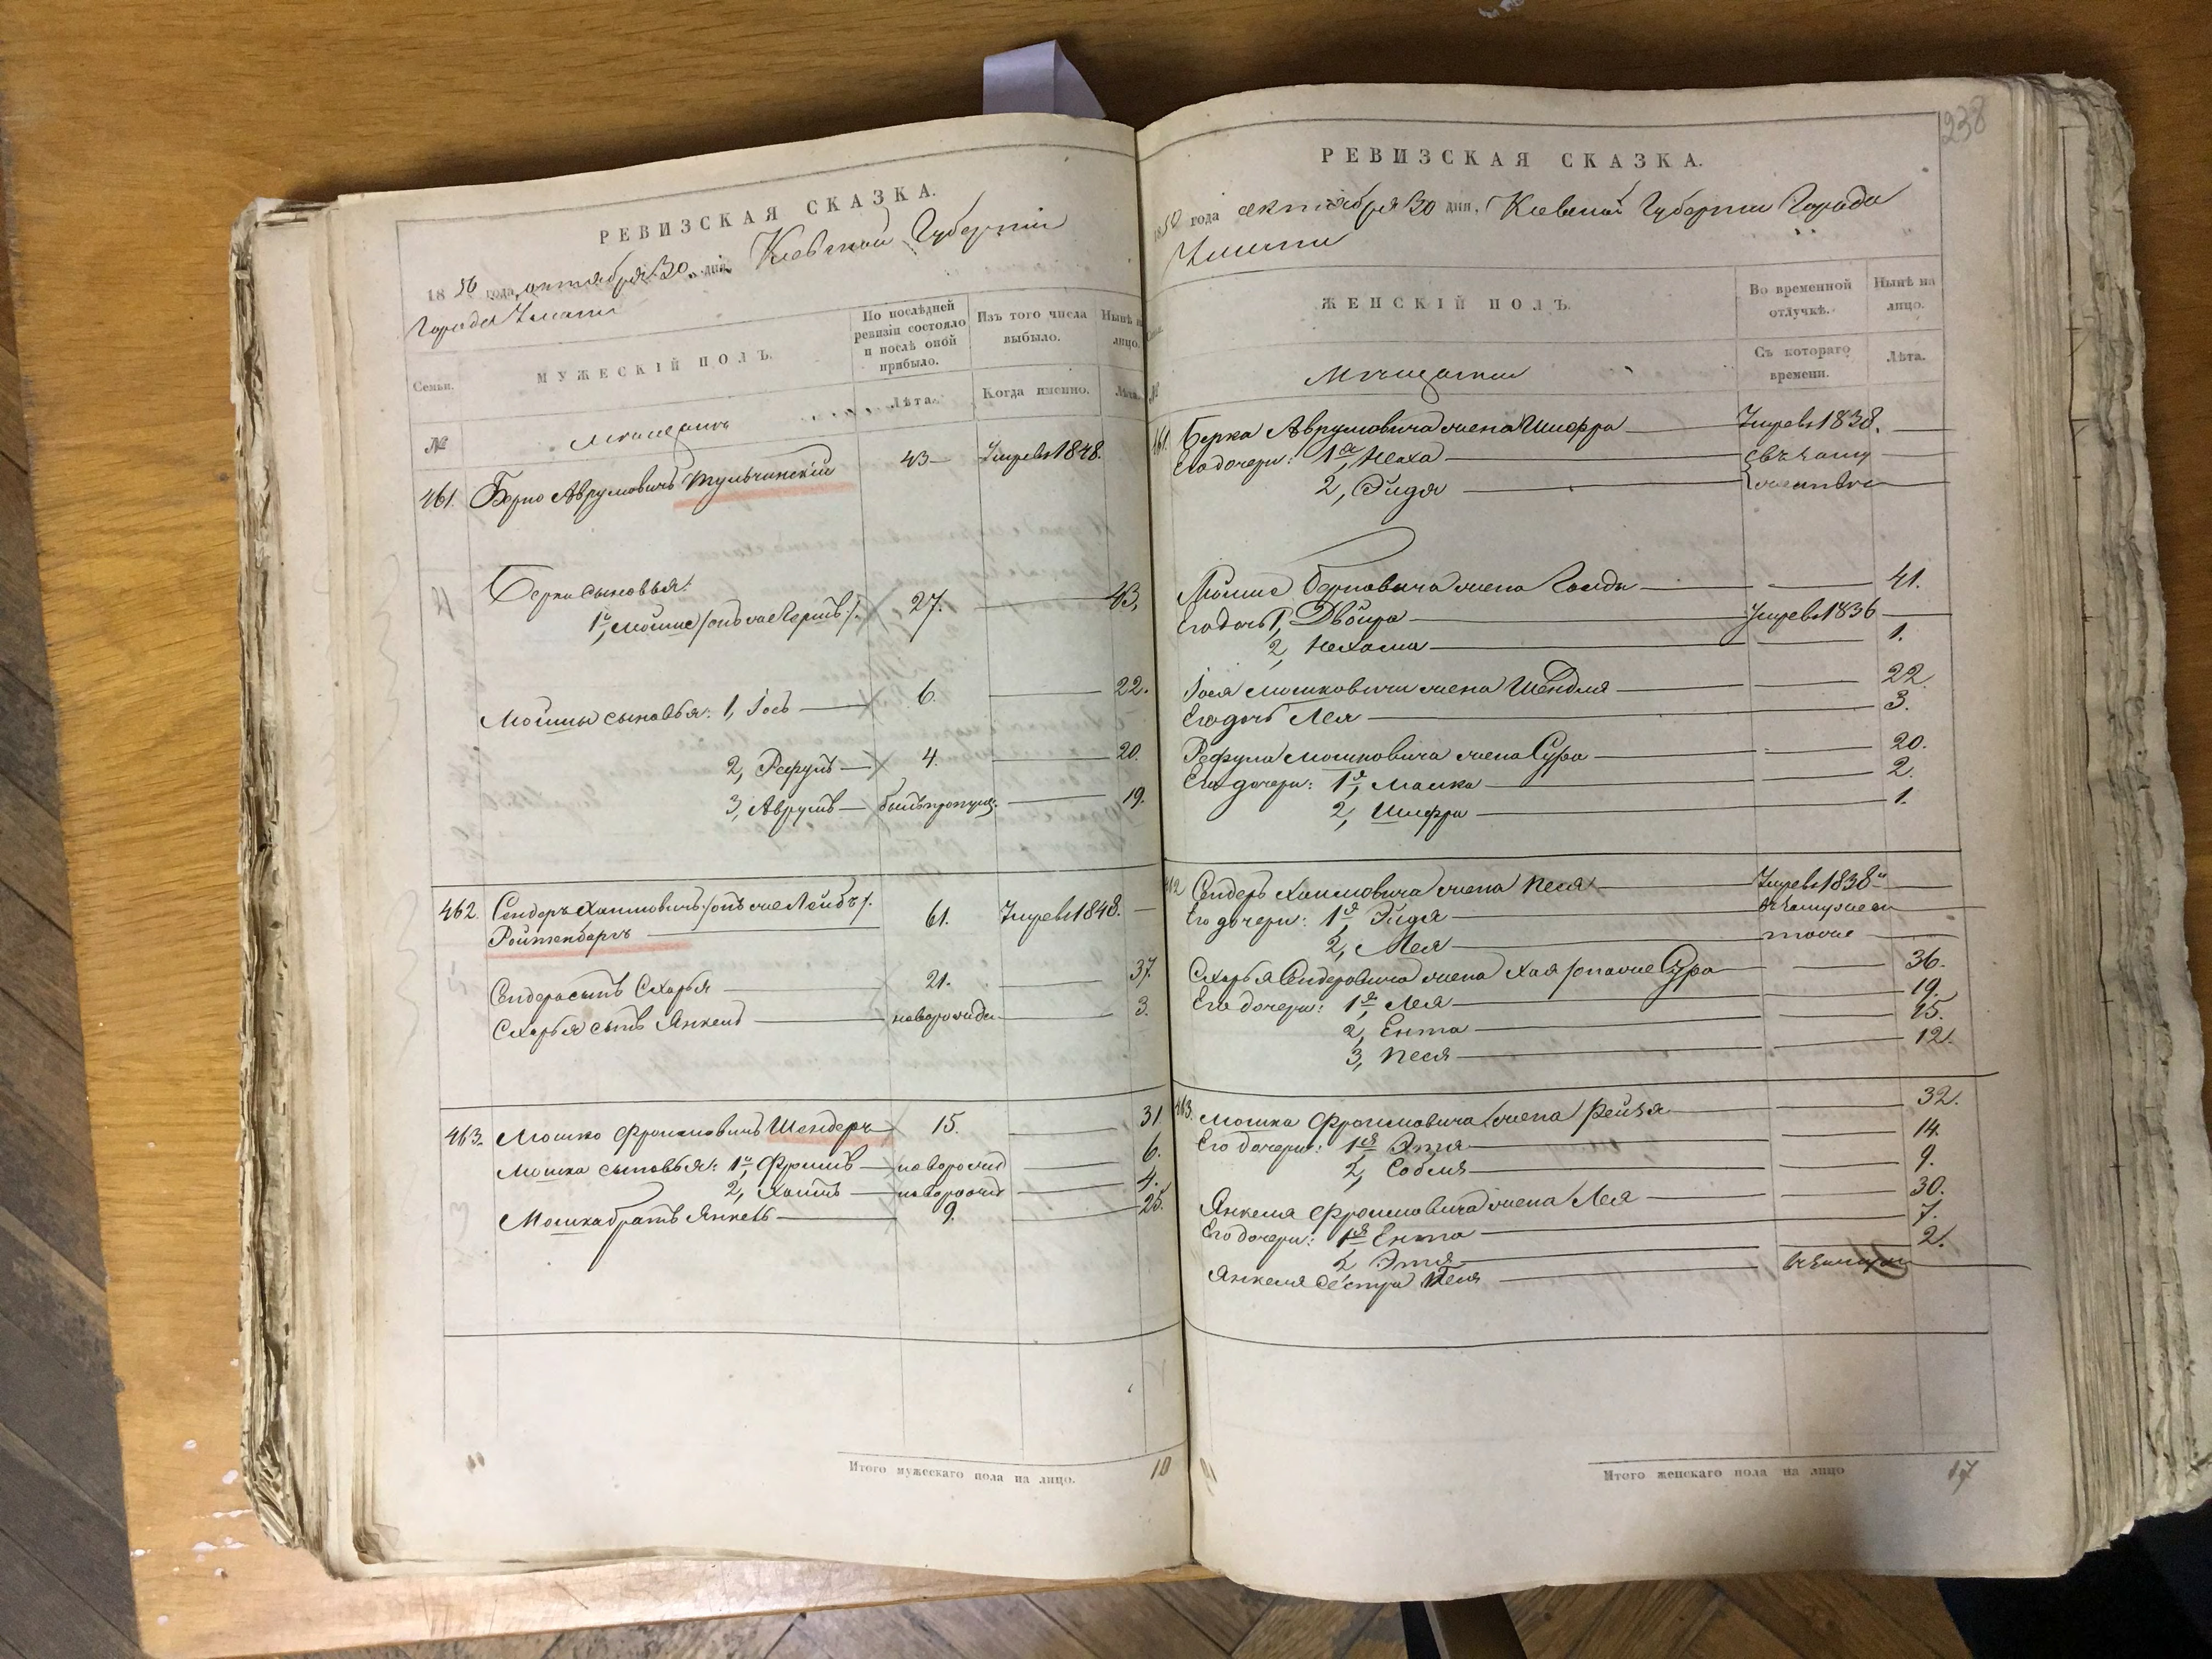 РЕВИЗСКАЯ СКАЗКА.
1850 года октября 30 дня, Кіевской Губерніи
Города Умани
Семьи.
МУЖЕСКІЙ ПОЛЪ.
По послѣдней ревизіи состояло и послѣ оной прибыло.
Изъ того числа выбыло.
Нынѣ на лицо.
№
Лѣта.
Когда именно.
Лѣта.
Мѣщане
461. Берко Аврумовичъ Тульчинскій 43 Умре въ 1848.
Берки сыновья:
1й, Мошко /онъ же Гершъ/. 27. 43.
Мошки сыновья: 1, Іось 6. 22.
2, Рефулъ 4. 20.
3, Аврумъ былъ пропущ. 19.
462. Сендеръ Хаимовичъ /онъ же Лейбъ/. 61. Умре въ 1848.
Ройтенбаргъ
Сендера сынъ Схарья 21. 37.
Схарья сынъ Янкель новорожде. 3.
463. Мошко Фроимовичъ Шендеръ 15. 31
Мошка сыновья: 1й Фроимъ новорожд 6.
2, Хаимъ новорожд 4.
Мошка братъ Янкель 9. 25.
Итого мужескаго пола на лицо. 10
238
РЕВИЗСКАЯ СКАЗКА.
1850 года октября 30 дня, Кіевской Губерніи Города
Умани
ЖЕНСКІЙ ПОЛЪ.
Во временной отлучкѣ.
Нынѣ на лицо.
№
Съ котораго времени.
Лѣта.
Мѣщанки
461. Берка Аврумовича жена Шифра Умре въ 1838.
Его дочери: 1я, Неха въ заму
2, Эйдя жествѣ
Мошка Берковича жена Голда 41.
Его дочь 1, Двойра Умре въ 1836
2, Нехама 1.
Іося Мошковича жена Шендля 22.
Его дочь Лея 3.
Рефула Мошковича жена Сура 20.
Его дочери: 1я, Малка 2.
2, Шифра 1.
462 Сендера Хаимовича жена Песя Умре въ 1838
Его дочери: 1я Эйдя въ замужест
2, Лея тоже
Схарья Сендеровича жена Хая /она же Сура 36.
Его дочери: 1я, Лея 19.
2, Ента 15.
3, Песя 12.
463. Мошка Фроимовича жена Рейзя 32.
Его дочери: 1я Этя 14.
2, Собля 9.
Янкеля Фроимовича жена Лея 30.
Его дочери: 1я Ента 7.
2, Этя 2.
Янкеля сестра Песя въ замуж
Итого женскаго пола на лицо 17